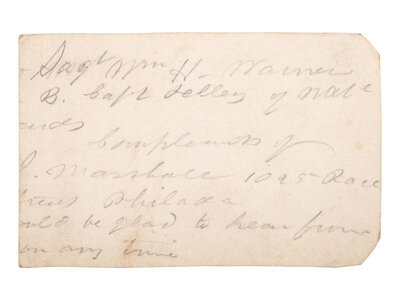 Sagt Wm H. Warner
B. Capt
of
Compliments of
Marshall 1025 Race
Philada
ould be glad to hear from
any time